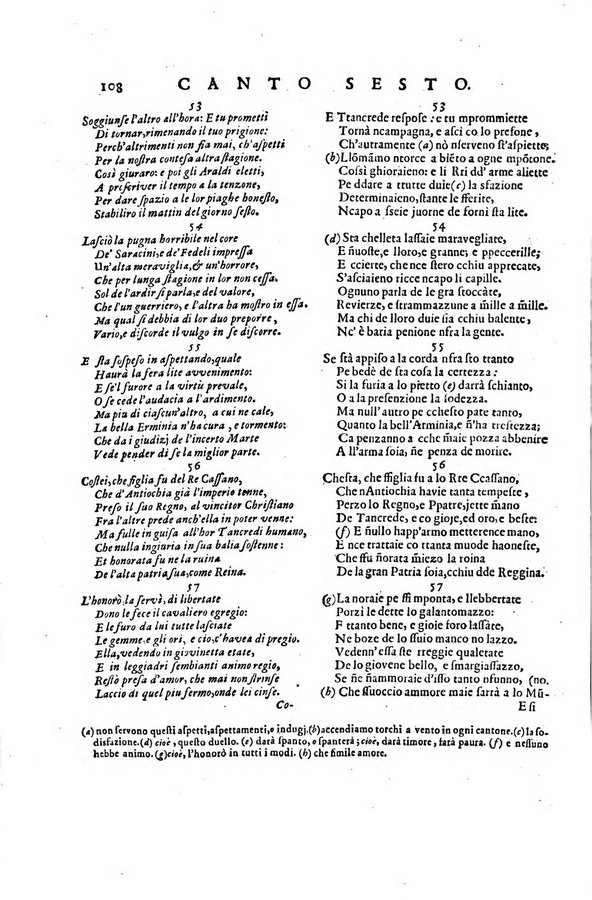 108 CANTO SESTO.
53
Soggiunſe l'altro all'hora: E tu prometti
Di tornar, rimenando il tuo prigione:
Perch'altrimenti non fia mai, ch'aſpetti
Per la noſtra conteſa altra ſtagione.
Così giuraro: e poi gli Araldi eletti,
A preſcriver il tempo a la tenzone,
Per dare ſpazio a le lor piaghe honeſto,
Stabiliro il mattin del giorno ſeſto.
54
Laſciò la pugna horribile nel core
De' Saracini, e de' Fedeli impreſſa
Un'alta meraviglia, & un'horrore,
Che per lunga ſtagione in lor non ceſſa.
Sol de l'ardir ſi parla, e del valore,
Che l'un guerriero, e l'altra ha moſtro in eſſa.
Ma qual ſi debbia di lor duo preporre,
Vario, e diſcorde il vulgo in ſe diſcorre.
55
E ſta ſoſpeſo in aſpettando, quale
Haurà la fera lite avvenimento:
E ſe'l furore a la virtù prevale,
O ſe cede l'audacia a l'ardimento.
Ma piu di ciaſcun'altro, a cui ne cale,
La bella Erminia n'ha cura, e tormento:
Che da i giudizj de l'incerto Marte
Vede pender di ſe la miglior parte.
56
Coſtei, che figlia fu del Re Caſſano,
Che d'Antiochia già l'imperio tenne,
Preſo il ſuo Regno, al vincitor Chriſtiano
Fra l'altre prede anch'ella in poter venne:
Ma fulle in guiſa all'hor Tancredi humano,
Che nulla ingiuria in ſua balia ſoſtenne:
Et honorata fu ne la ruina
De l'alta patria ſua, come Reina.
57
L'honorò, la ſervì, di libertate
Dono le fece il cavaliero egregio:
E le furo da lui tutte laſciate
Le gemme, e gli ori, e cio, c'havea di pregio.
Ella, vedendo in giovinetta etate,
E in leggiadri ſembianti animo regio,
Reſtò preſa d'amor, che mai non ſtrinſe
Laccio di quel piu fermo, onde lei cinſe.
Co-
53
E Ttancrede reſpoſe: e tu mprommiette
Tornà ncampagna, e aſci co lo preſone,
Ch'autramente (a) nò nſerveno ſt'aſpiette;
(b) Llõmãmo ntorce a biẽto a ogne mpõtone.
Coſsì ghioraieno: e li Rri dd'arme aliette
Pe ddare a ttutte duie (c) la sfazione
Determinaieno, ſtante le fferite,
Ncapo a ſeie juorne de forni ſta lite.
54
(d) Sta chelleta laſſaie maravegliate,
E ñuoſte, e lloro, e granne; e ppeccerille;
E ccierte, che nce ſtero cchiu apprecate,
S'aſciaieno ricce ncapo li capille.
Ognuno parla de le gra ſtoccàte,
Revierze, e ſtrammazzune a m̃ille a m̃ille.
Ma chi de lloro duie ſia cchiu balente,
Nc'è baria penione nfra la gente.
55
Se ſtà appiſo a la corda nfra ſto ttanto
Pe bedè de ſta coſa la certezza:
Si la furia a lo pietto (e) darrà ſchianto,
O a la preſenzione la ſodezza.
Ma null'autro pe ccheſto pate tanto,
Quanto la bell'Arminia, e ñ'ha treſtezza;
Ca penzanno a cche m̃aie pozza abbenire
A ll'arma ſoia, ñe penza de morire.
56
Cheſta, che ffiglia fu a lo Rre Ccaſſano,
Che nAntiochia havie tanta tempeſte,
Perzo lo Regno, e Ppatre, jette m̃ano
De Tancrede, e co gioje, ed oro, e beſte:
(f) E ñullo happ'armo metterence mano,
E nce trattaie co ttanta muode haoneſte,
Che ffu ñhorata m̃iezo la roina
De la gran Patria ſoia, cchiu dde Reggina.
57
(g) La noraie pe ffi m̃ponta, e llebbertate
Porzi le dette lo galantomazzo:
E ttanto bene, e gioie, e oro laſſate
Ne boze de lo ſſuio manco no lazzo.
Vedenn'eſſa ſte rreggie qualetate
De lo giovene bello, e ſmargiaſſazzo,
Se ñe ñammoraie d'iſſo tanto nfunno, (no.
(h) Che ſſuoccio ammore maie ſarrà a lo Mũ-
Eſi
(a) non ſervono queſti aſpetti, aſpettamenti, e indugj. (b) accendiamo torchi a vento in ogni cantone. (c) la ſo-
disfazione. (d) cioè, queſto duello. (e) darà ſpanto, o ſpanterà; cioè, darà timore, farà paura. (f) e neſſuno
hebbe animo. (g) cioè, l'honorò in tutti i modi. (h) che ſimile amore.